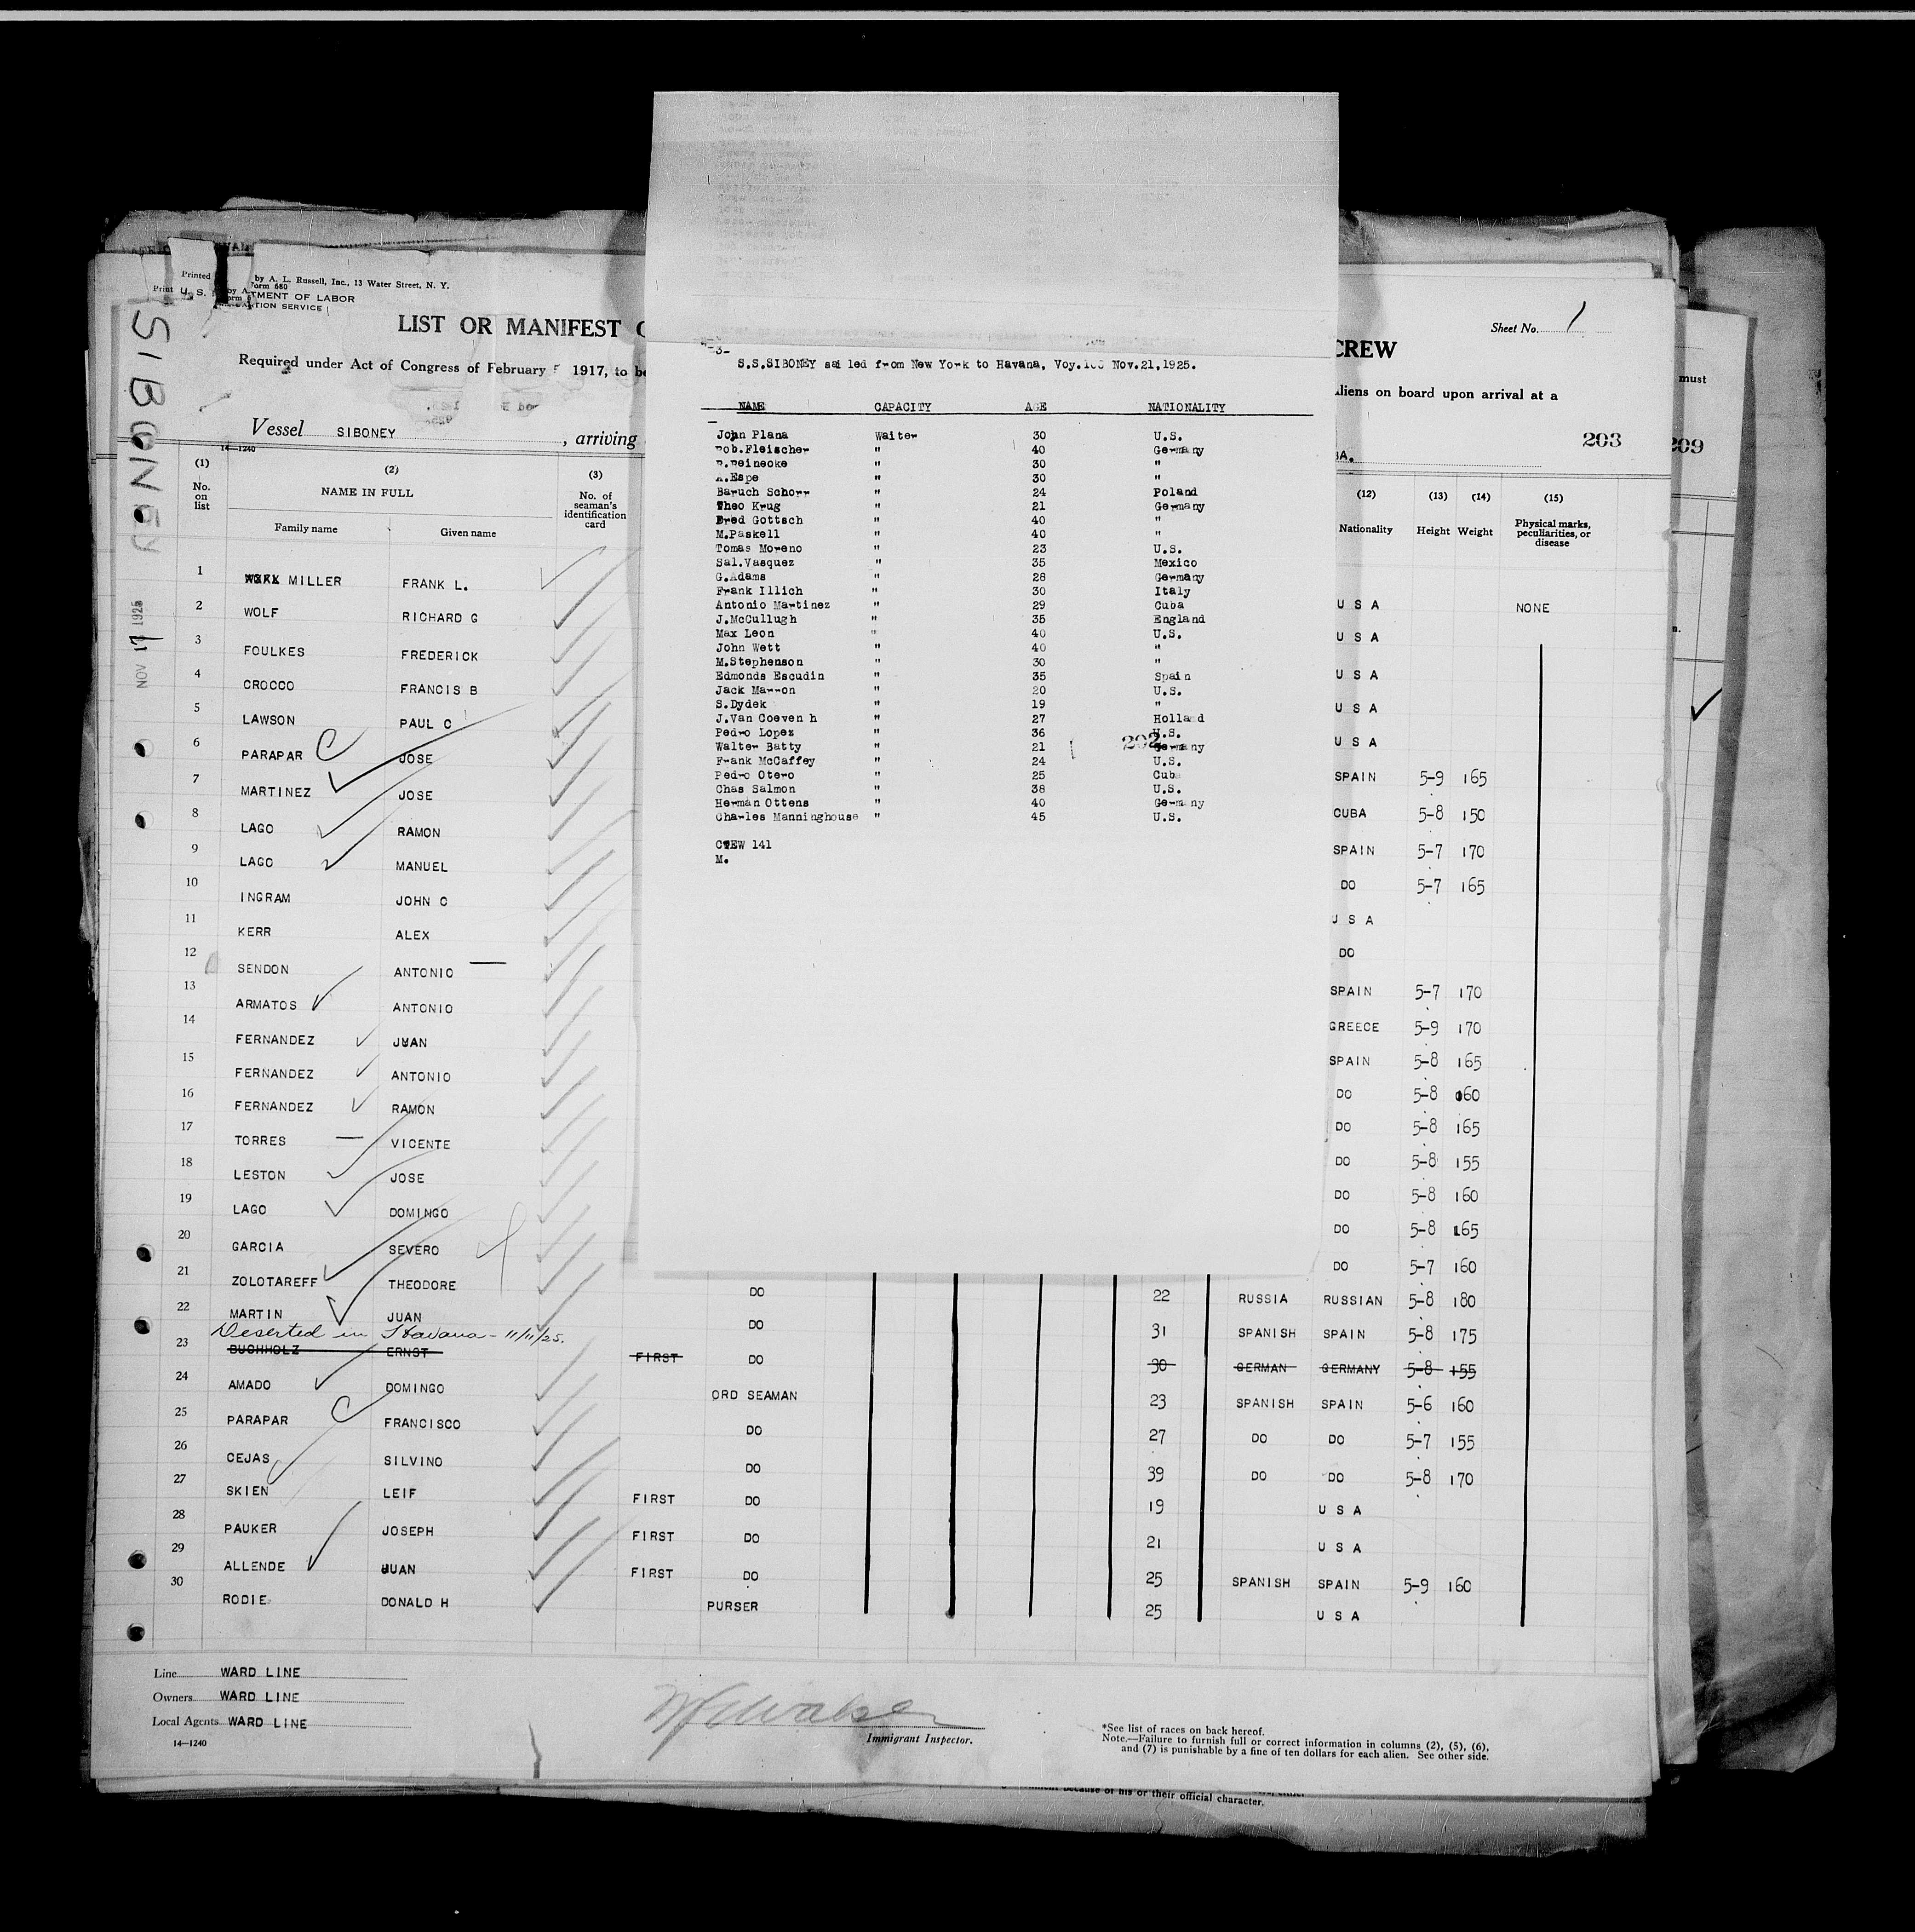 Printed by A. L. Russell, Inc., 13 Water Street, N. Y.
Form 680
U. S. DEPARTMENT OF LABOR
IMMIGRATION SERVICE
LIST OR MANIFEST
CREW
Sheet No. 1
Required under Act of Congress of February 5 1917, to be
aliens on board upon arrival at a
must
Vessel SIBONEY, arriving
203
209
SIBONEY
NOV 17 1925
14—1240
(1) No. on list
(2) NAME IN FULL
Family name Given name
(3) No. of seaman's identification card
(12) Nationality
(13) Height
(14) Weight
(15) Physical marks, peculiarities, or disease
-3-
S.S.SIBONEY sailed from New York to Havana, Voy. Nov.21,1925.
NAME CAPACITY AGE NATIONALITY
John Plana Waiter 30 U.S.
Rob.Fleischer " 40 Germany
R.Reinecke " 30 "
A.Espe " 30 "
Baruch Schorr " 24 Poland
Theo Krug " 21 Germany
Fred Gottsch " 40 "
M.Paskell " 40 "
Tomas Moreno " 23 U.S.
Sal.Vasquez " 35 Mexico
G.Adams " 28 Germany
Frank Illich " 30 Italy
Antonio Martinez " 29 Cuba
J.McCullugh " 35 England
Max Leon " 40 U.S.
John Wett " 40 "
M.Stephenson " 30 "
Edmonds Escudin " 35 Spain
Jack Marron " 20 U.S.
S.Dydek " 19 "
J.Van Coeven h " 27 Holland
Pedro Lopez " 36 U.S.
202
Walter Batty " 21 Germany
Frank McCaffey " 24 U.S.
Pedro Otero " 25 Cuba
Chas Salmon " 38 U.S.
Herman Ottens " 40 Germany
Charles Manninghouse " 45 U.S.
CREW 141
M.
1 MILLER FRANK L. U S A NONE
2 WOLF RICHARD G U S A
3 FOULKES FREDERICK U S A
4 CROCCO FRANCIS B U S A
5 LAWSON PAUL C U S A
6 PARAPAR C JOSE SPAIN 5-9 165
7 MARTINEZ JOSE CUBA 5-8 150
8 LAGO RAMON SPAIN 5-7 170
9 LAGO MANUEL DO 5-7 165
10 INGRAM JOHN C U S A
11 KERR ALEX DO
12 SENDON ANTONIO SPAIN 5-7 170
13 ARMATOS ANTONIO GREECE 5-9 170
14 FERNANDEZ JUAN SPAIN 5-8 165
15 FERNANDEZ ANTONIO DO 5-8 160
16 FERNANDEZ RAMON DO 5-8 165
17 TORRES VICENTE DO 5-8 155
18 LESTON JOSE DO 5-8 160
19 LAGO DOMINGO DO 5-8 165
20 GARCIA SEVERO DO 5-7 160
21 ZOLOTAREFF THEODORE DO 22 RUSSIA RUSSIAN 5-8 180
22 MARTIN JUAN DO 31 SPANISH SPAIN 5-8 175
Deserted in Havana - 11/11/25.
23 BUCHHOLZ ERNST FIRST DO 30 GERMAN GERMANY 5-8 155
24 AMADO DOMINGO ORD SEAMAN 23 SPANISH SPAIN 5-6 160
25 PARAPAR C FRANCISCO DO 27 DO DO 5-7 155
26 CEJAS SILVINO DO 39 DO DO 5-8 170
27 SKIEN LEIF FIRST DO 19 U S A
28 PAUKER JOSEPH FIRST DO 21 U S A
29 ALLENDE JUAN FIRST DO 25 SPANISH SPAIN 5-9 160
30 RODIE DONALD H PURSER 25 U S A
Line WARD LINE
Owners WARD LINE
Local Agents WARD LINE
14—1240
Immigrant Inspector.
*See list of races on back hereof.
Note.—Failure to furnish full or correct information in columns (2), (5), (6),
and (7) is punishable by a fine of ten dollars for each alien. See other side.
because of his or their official character.